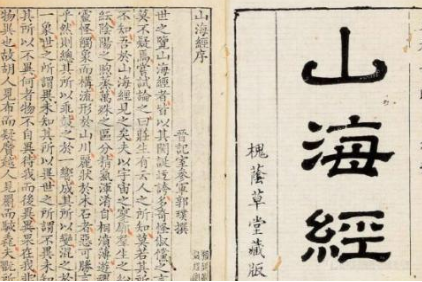 山海經
槐蔭草堂藏版
山海經序
晉記室參軍郭璞撰
世之覽山海經者皆以其閎誕迂誇多奇怪俶儻之言
莫不疑焉嘗試論之曰莊生有云人之所知莫若其所
不知吾於山海經見之矣夫以宇宙之寥廓羣生之紛
紜陰陽之煦蒸萬殊之區分精氣渾淆自相濆薄遊魂
靈怪觸象而構流形於山川麗狀於木石者惡可勝言
乎然則總其所以乖鼓之於一響成其所以變混之於一
象世之所謂異未知其所以異世之所謂不異未知
其所以不異何者物不自異待我而後異異果在我非
物異也故胡人見布而疑黂越人見罽而駭毳夫翫所